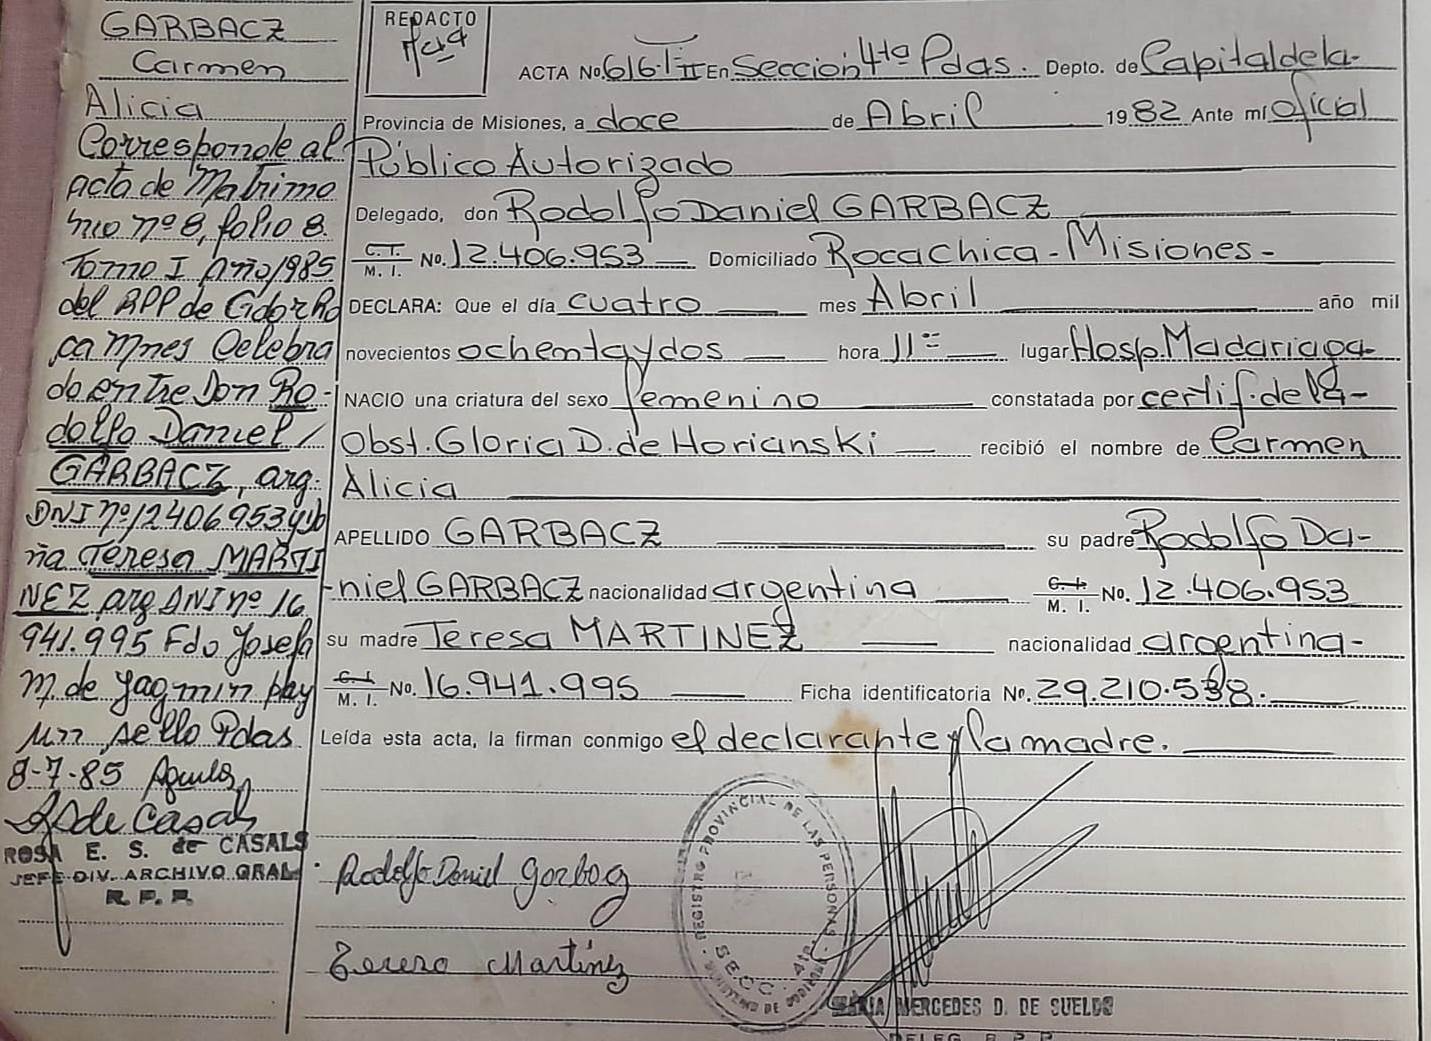 GARBACZ
Carmen
Alicia
Corresponde al
acta de Matrimo
nio nº 8, folio 8.
Tomo I Año 1985
del RPP de
Misiones Celebra
do entre Don Ro-
dolfo Daniel
GARBACZ, arg.
DNI nº 12406953 y Do
ña Teresa MARTI
NEZ arg DNI nº 16.
941.995 Fdo Josefa
M. de Yagmin hay
un sello Pdas
8-7-85
ROSA E. S. de CASALS
JEFE DIV. ARCHIVO GRAL.
R. P. P.
REDACTO
ACTA No. 616-T II En Sección 4ta Pdas. Depto. de Capital de la-
Provincia de Misiones, a doce de Abril 1982 Ante mí Oficial
Público Autorizado
Delegado, don Rodolfo Daniel GARBACZ
C. I. M. I. No. 12.406.953 Domiciliado Roca Chica - Misiones -
DECLARA: Que el día cuatro mes Abril año mil
novecientos ochenta y dos hora 11= lugar Hosp. Madariaga
NACIO una criatura del sexo femenino constatada por certif. de la-
Obst. Gloria D. de Horianski recibió el nombre de Carmen
Alicia
APELLIDO GARBACZ su padre Rodolfo Da-
niel GARBACZ nacionalidad argentina C. I. M. I. No. 12.406.953
su madre Teresa MARTINEZ nacionalidad argentina-
C. I. M. I. No. 16.941.995 Ficha identificatoria No. 29.210.538.
Leída esta acta, la firman conmigo el declarante y la madre.
REGISTRO PROVINCIAL DE LAS PERSONAS
SECC. 4ta
Rodolfo Daniel Garbacz
Teresa Martinez
MARIA MERCEDES D. DE SUELDO
DELEG. R. P. P.